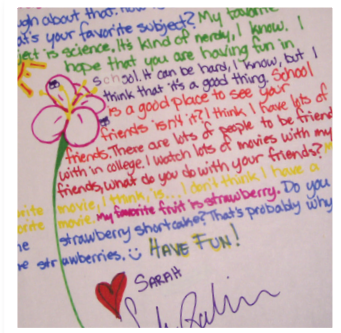 ugh about that. how
at's your favorite subject? My favorite
ject is science, It's kind of nerdy, I know. I
hope that you are having fun in
School. It can be hard, I know, but I
think that it's a good thing. School
is a good place to see your
friends isn't it? I think I have lots of
friends. There are lots of people to be friend
with in college. I watch lots of movies with my
friends, what do you do with your friends?
rite movie, I think, is... I don't think I have a
orite movie. my favorite fruit is strawberry. Do you
e strawberry shortcake? That's probably why
e strawberries. HAVE FUN!
SARAH